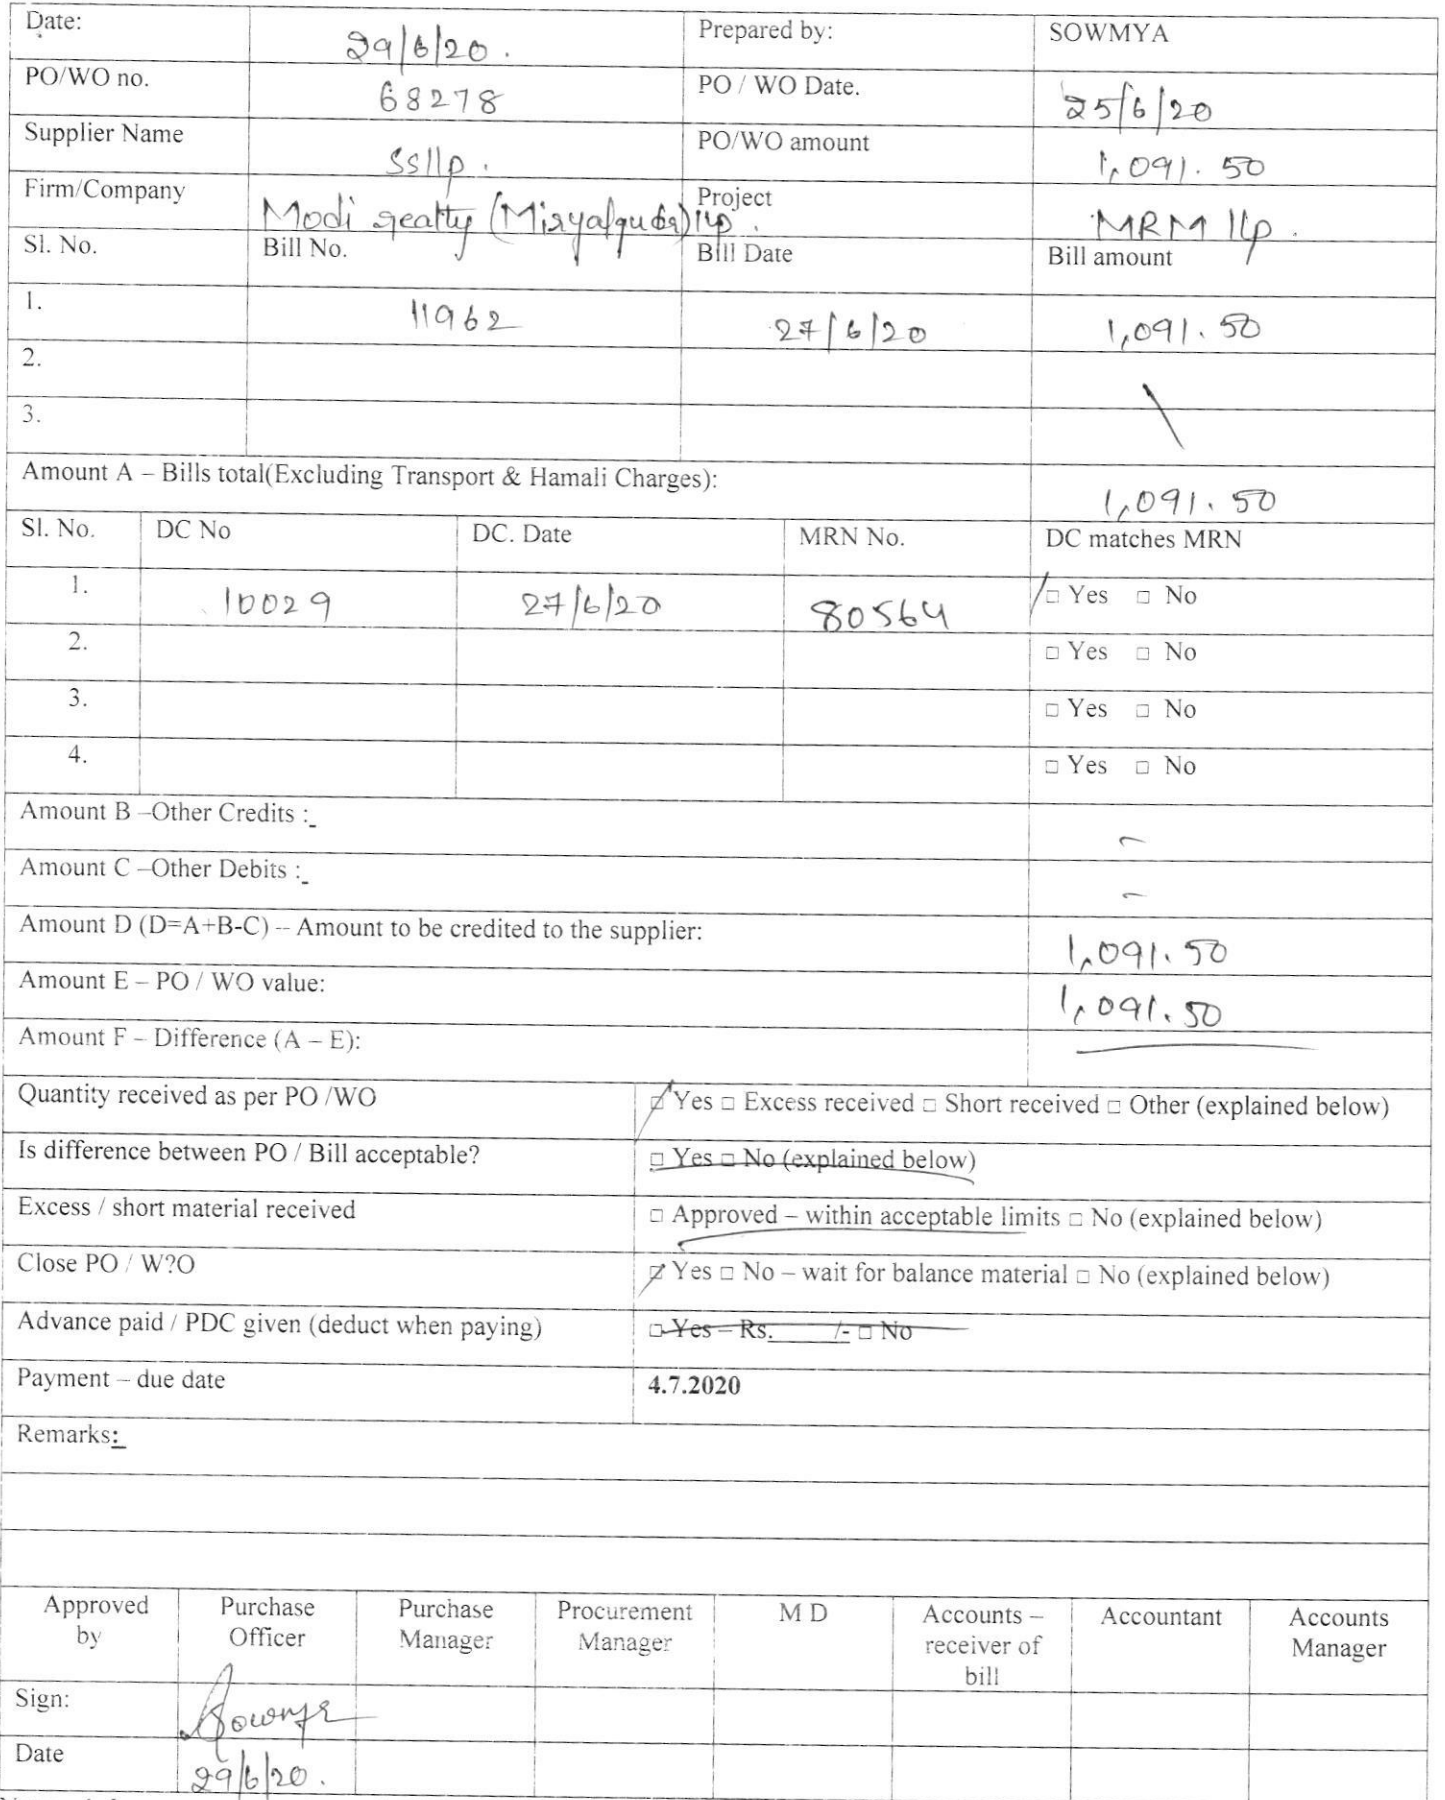 Date: 29/6/20. Prepared by: SOWMYA
PO/WO no. 68278 PO / WO Date. 25/6/20
Supplier Name SSllp. PO/WO amount 1,091.50
Firm/Company Modi realty (Miryalguda) llp. Project MRM llp.
Sl. No. Bill No. Bill Date Bill amount
1. 11962 27/6/20 1,091.50
2.
3.
Amount A – Bills total(Excluding Transport & Hamali Charges): 1,091.50
Sl. No. DC No DC. Date MRN No. DC matches MRN
1. 10029 27/6/20 80564 □ Yes □ No
2. □ Yes □ No
3. □ Yes □ No
4. □ Yes □ No
Amount B –Other Credits : –
Amount C –Other Debits : –
Amount D (D=A+B-C) – Amount to be credited to the supplier: 1,091.50
Amount E – PO / WO value: 1,091.50
Amount F – Difference (A – E):
Quantity received as per PO /WO □ Yes □ Excess received □ Short received □ Other (explained below)
Is difference between PO / Bill acceptable? □ Yes □ No (explained below)
Excess / short material received □ Approved – within acceptable limits □ No (explained below)
Close PO / W?O □ Yes □ No – wait for balance material □ No (explained below)
Advance paid / PDC given (deduct when paying) □ Yes – Rs.____/- □ No
Payment – due date 4.7.2020
Remarks:
Approved by Purchase Officer Purchase Manager Procurement Manager M D Accounts – receiver of bill Accountant Accounts Manager
Sign: Sowmya
Date 29/6/20.